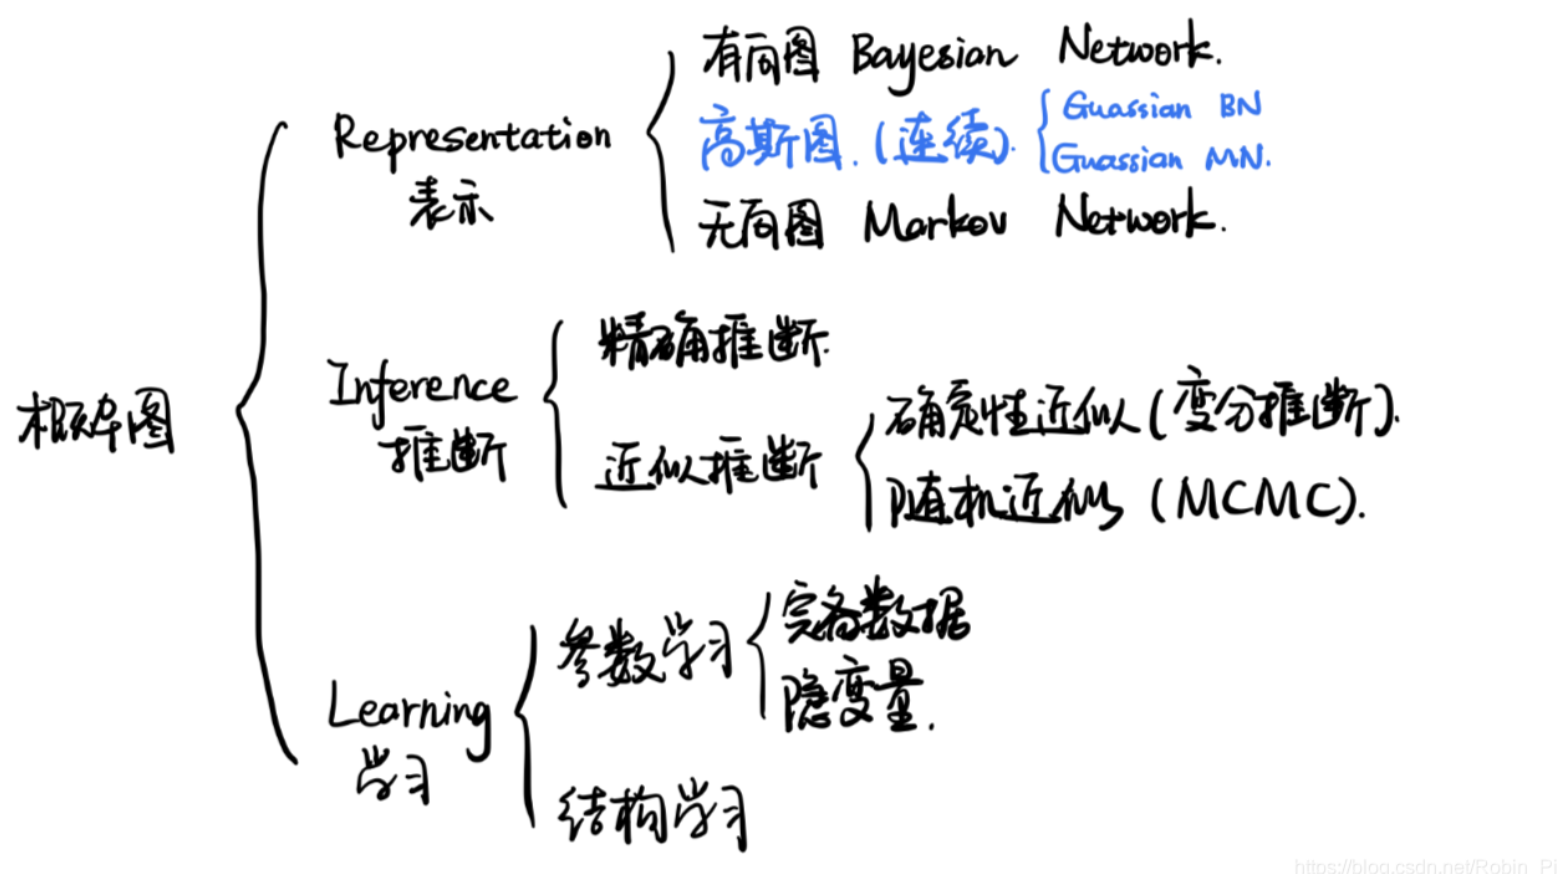 概率图
Representation
表示
有向图 Bayesian Network.
高斯图.(连续).
Guassian BN
Guassian MN.
无向图 Markov Network.
Inference
推断
精确推断.
近似推断
确定性近似(变分推断).
随机近似 (MCMC).
Learning
学习
参数学习
完备数据
隐变量.
结构学习
https://blog.csdn.net/Robin_Pi